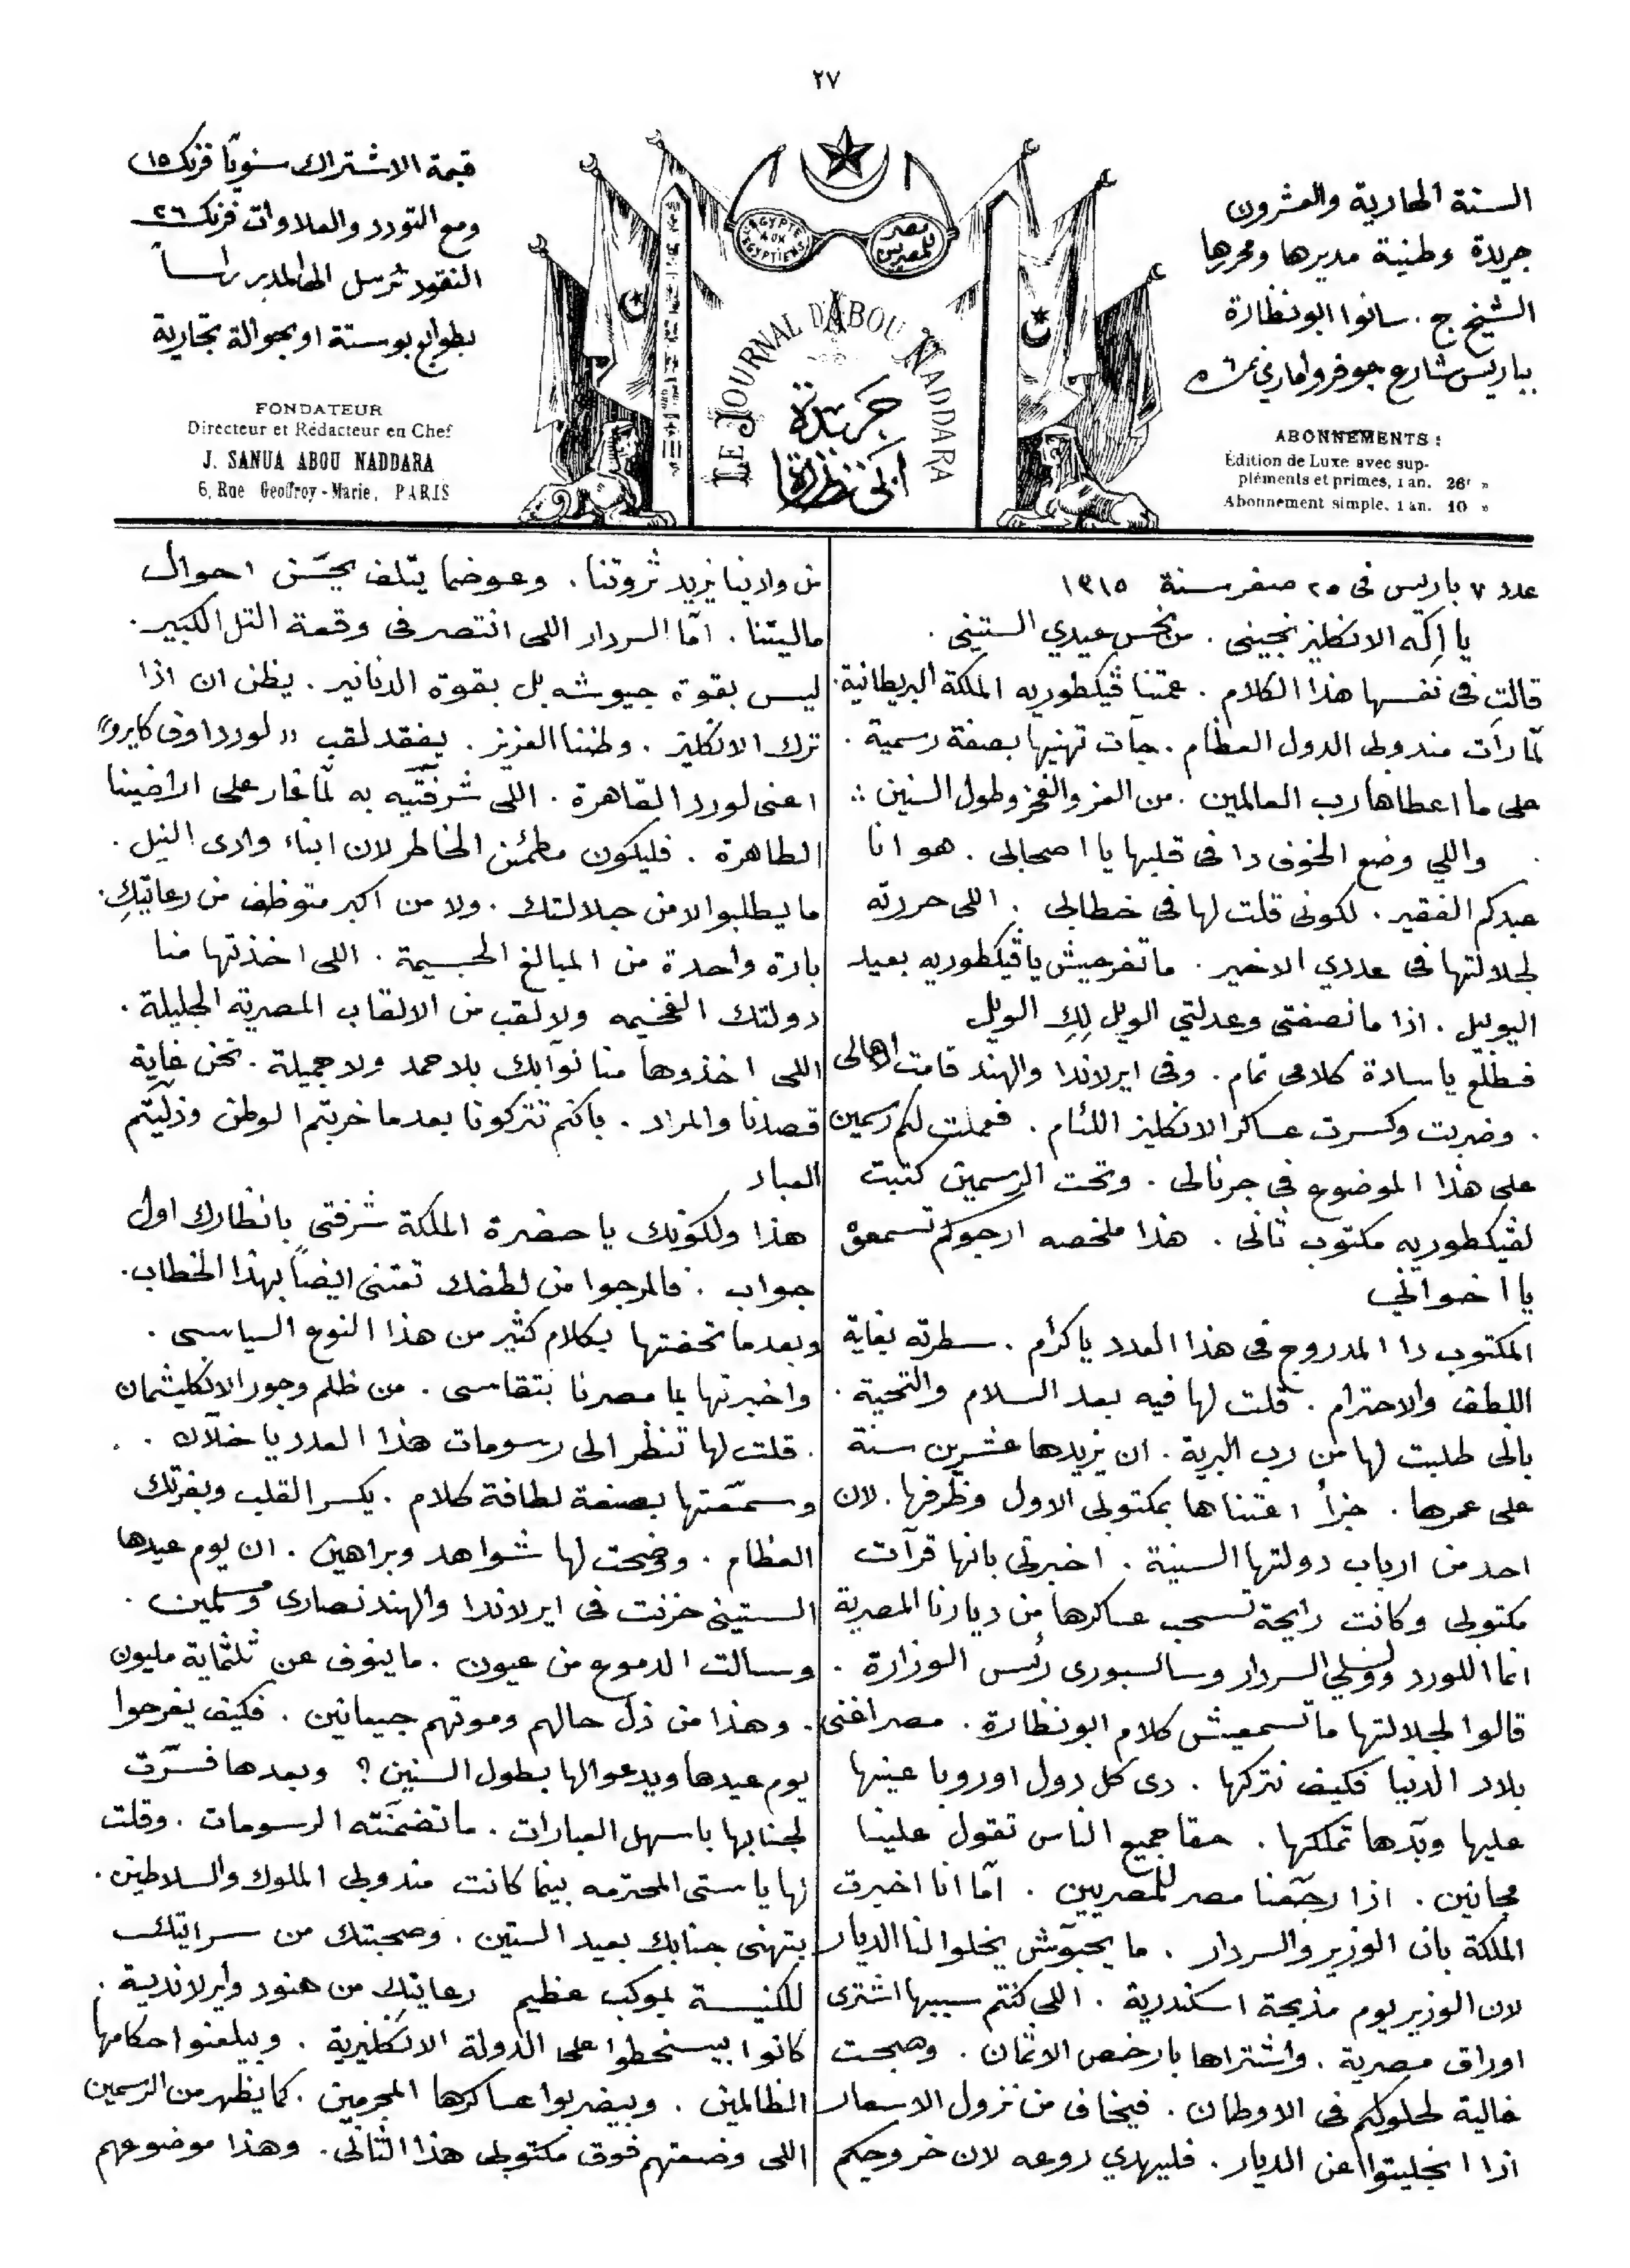 ٢٧
السنة الحادية والعشرون
جريدة وطنية مديرها ومحررها
الشيخ ج. سانوا ابو نظارة
بباريس شارع جوفروا ماري نمرة ٦
ABONNEMENTS :
Édition de Luxe avec sup-
pléments et primes, 1 an. 26f »
Abonnement simple, 1 an. 10 »
EGYPTE AUX EGYPTIENS
مصر للمصريين
LE JOURNAL D'ABOU NADDARA
جريدة
ابى نظارة
قيمة الاشتراك سنويًا فرنك ١٥
ومع التودد والعلاوات فرنك ٢٦
النقود ترسل الى المدير رأساً
بطوابع بوستة او بحوالة تجارية
FONDATEUR
Directeur et Rédacteur en Chef
J. SANUA ABOU NADDARA
6, Rue Geoffroy-Marie, PARIS
عدد ٧ باريس فى ٢٥ صفر سنة ١٣١٥
يا إلٓه الانكليز نجينى . من نحس عيدي الستينى .
قالت فى نفسها هذا الكلام . عمتنا ڤيكطوريه الملكة البريطانية .
لمّا رأت مندوبى الدول العظام . جآت تهنيها بصفة رسمية .
على ما اعطاها رب العالمين . من العز والفخر وطول السنين ::
واللي وضع الخوف دا فى قلبها يا اصحابى . هو انا
عبدكم الفقير . لكونى قلت لها فى خطابى . اللى حررته
لجلالتها فى عددي الاخير . ما تفرحيش يا ڤيكطوريه بعيد
اليوبيل . اذا ما نصفتى وعدلتي الويل لكِ الويل
فطلع يا سادة كلامى تمام . وفى ايرلاندا والهند قامت الاهالى
. وضربت وكسرت عساكر الانكليز اللئام . فعملت لكم رسمين
على هذا الموضوع فى جرنالى . وتحت الرسمين كتبت
لڤيكطوريه مكتوب تانى . هذا ملخصه ارجوكم تسمعوه
يا اخواني
المكتوب دا المدروج فى هذا العدد يا كرام . سطرته بغاية
اللطف والاحترام . قلت لها فيه بعد السلام والتحية .
بانى طلبت لها من رب البرية . ان يزيدها عشرين سنة
على عمرها . جزأ اعتناها بمكتوبى الاول وظرفها . لان
احد من ارباب دولتها السنية . اخبرنى بانها قرآت
مكتوبى وكانت رايحة تسحب عساكرها من ديارنا المصرية
انما اللورد وولسلي السردار وسالسبورى رئس الوزارة .
قالوا لجلالتها ما تسمعيش كلام ابو نظارة . مصر اغنى
بلاد الدنيا فكيف نتركها . دى كل دول اوروبا عينها
عليها وبدّها تملكها . حقا جميع الناس تقول علينا
مجانين . اذا رجّعنا مصر للمصريين . آما انا اخبرت
الملكة بان الوزير والسردار . ما يحبوش يخلوا لنا الديار
لان الوزير يوم مذبحة اسكندرية . اللى كنتم سببها اشترى
اوراق مصرية . واشتراها بارخص الاثمان . وصبحت
غالية لحلولكم فى الاوطان . فيخاف من نزول الاسعار
اذا انجليتوا عن الديار . فليهدي روعه لان خروجكم
من وادينا يزيد ثروتنا . وعوضما يتلف يحسّن احوال
ماليتنا . امّا السردار اللى انتصر فى وقعة التل الكبير .
ليس بقوة جيوشه بل بقوة الدنانير . يظن ان اذا
ترك الانكليز . وطننا العزيز . يفقد لقب «لورد اوف كايرو»
اعنى لورد القاهرة . اللى شرفتيه به لمّا غار على اراضينا
الطاهرة . فليكون مطمئن الخاطر لان ابناء وادى النيل .
ما يطلبوا لا من جلالتك . ولا من اكبر متوظف من رعايتكِ .
بارة واحدة من المبالغ الجسيمة . اللى اخذتها منا
دولتك الفخيمه ولا لقب من الالقاب المصريه الجليلة .
اللى اخذوها منا نوآبك بلا حمد ولا جميلة . نحن غاية
قصدنا والمراد . بانكم تتركونا بعدما خربتم الوطن وذليتم
العباد
هذا ولكونك يا حضرة الملكة شرفتى بانظارك اول
جواب . فالمرجوا من لطفك تعتنى ايضاً بهذا الخطاب .
وبعدما تحفتها بكلام كثير من هذا النوع السياسى .
واخبرتها بما مصرنا بتقاسى . من ظلم وجور الانكليشمان
. قلت لها تنظر الى رسومات هذا العدد يا خلاّن .
وسمّعتها بصنعة لطافة كلام . يكسر القلب ويفرتك
العظام . ووضحت لها شواهد وبراهين . ان يوم عيدها
الستينى حزنت فى ايرلاندا والهند نصارى ومسلمين .
وسالت الدموع من عيون . ما ينوف عن ثلثماية مليون
. وهذا من ذل حالهم وموتهم جيعانين . فكيف يفرحوا
يوم عيدها ويدعوا لها بطول السنين ؟ وبعدها فسّرت
لجنابها باسهل العبارات . ما تضمّنته الرسومات . وقلت
لها يا ستى المحترمه بينما كانت مندوبى الملوك والسلاطين .
بتهنى جنابك بعيد الستين . وصحبتك من سرايتك
للكنيسة بموكب عظيم رعايتكِ من هنود وايرلاندية .
كانوا بيسخطوا على الدولة الانكليزية . وبيلعنوا حكامها
الظالمين . وبيضربوا عساكرها المجرمين . كما يظهر من الرسمين
اللى وضعتهم فوق مكتوبى هذا الثانى . وهذا موضوعهم